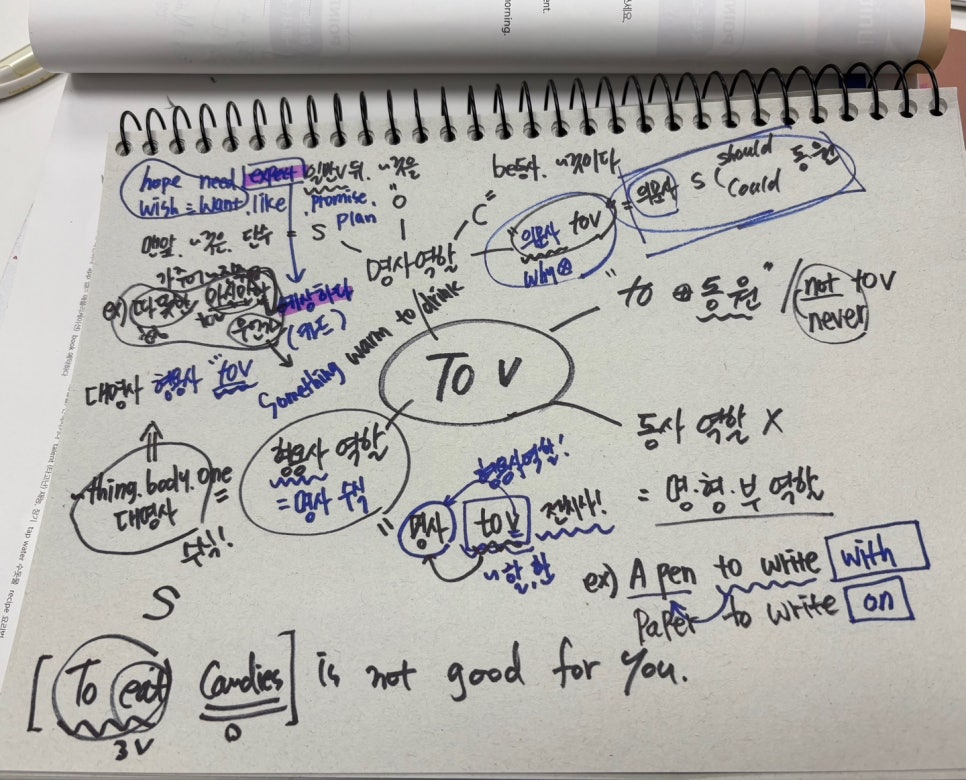 hope need expect 일반V 뒤. ~것을
wish = want. like. promise. O
plan
be동사. ~것이다
C =
"의문사 toV = 의문사 S ( should 동원
could
why ⊗
맨앞. ~것은. 단수 = S
명사역할
ex)
예상하다
"to ⊕ 동원" / not toV
never
대명사 형용사 "toV
Something warm to drink
To V
동사 역할 X
= 명·형·부 역할
~thing. body. one =
대명사
수식!
형용사 역할
= 명사 수식
형용사역할!
" 명사 toV 전치사!
~할, 한
ex) A pen to write with
Paper to write on
S
[To eat Candies] is not good for you.
3V O